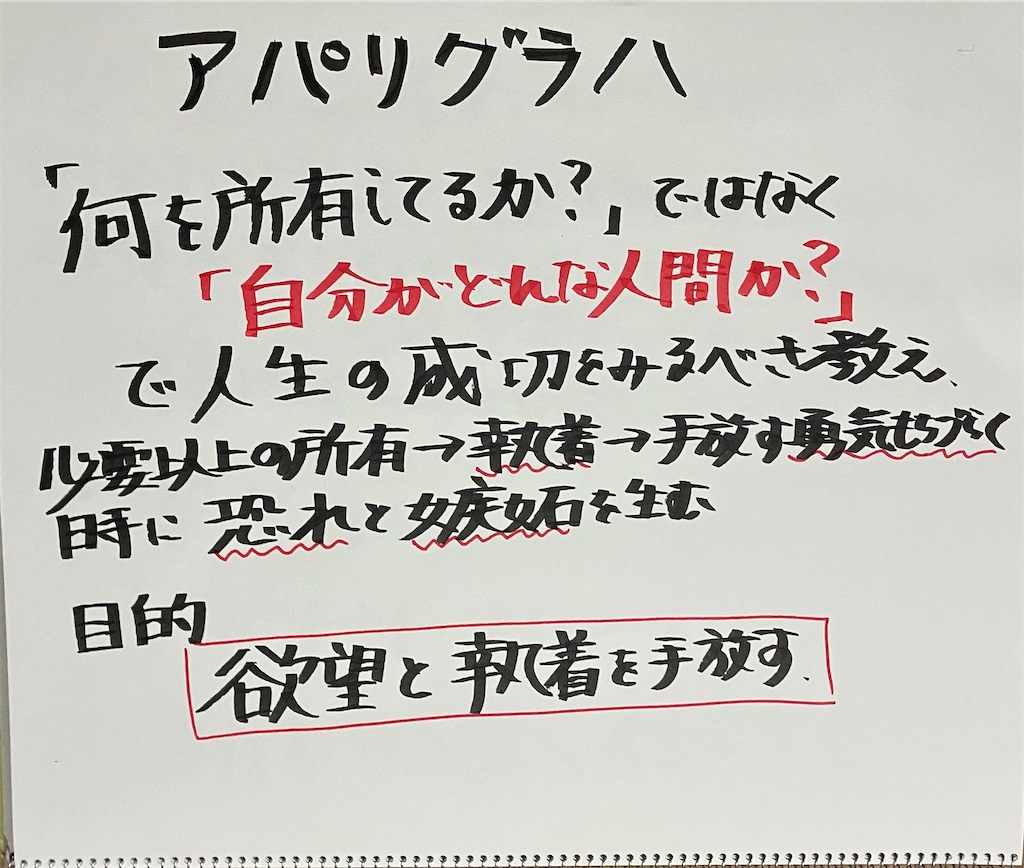 アパリグラハ
「何を所有してるか?」ではなく
「自分がどれな人間か?」
で人生の成功をみるべき教え、
必要以上の所有→執着→手放す勇気もちづらく
時に恐れと嫉妬を生む
目的
欲望と執着を手放す.